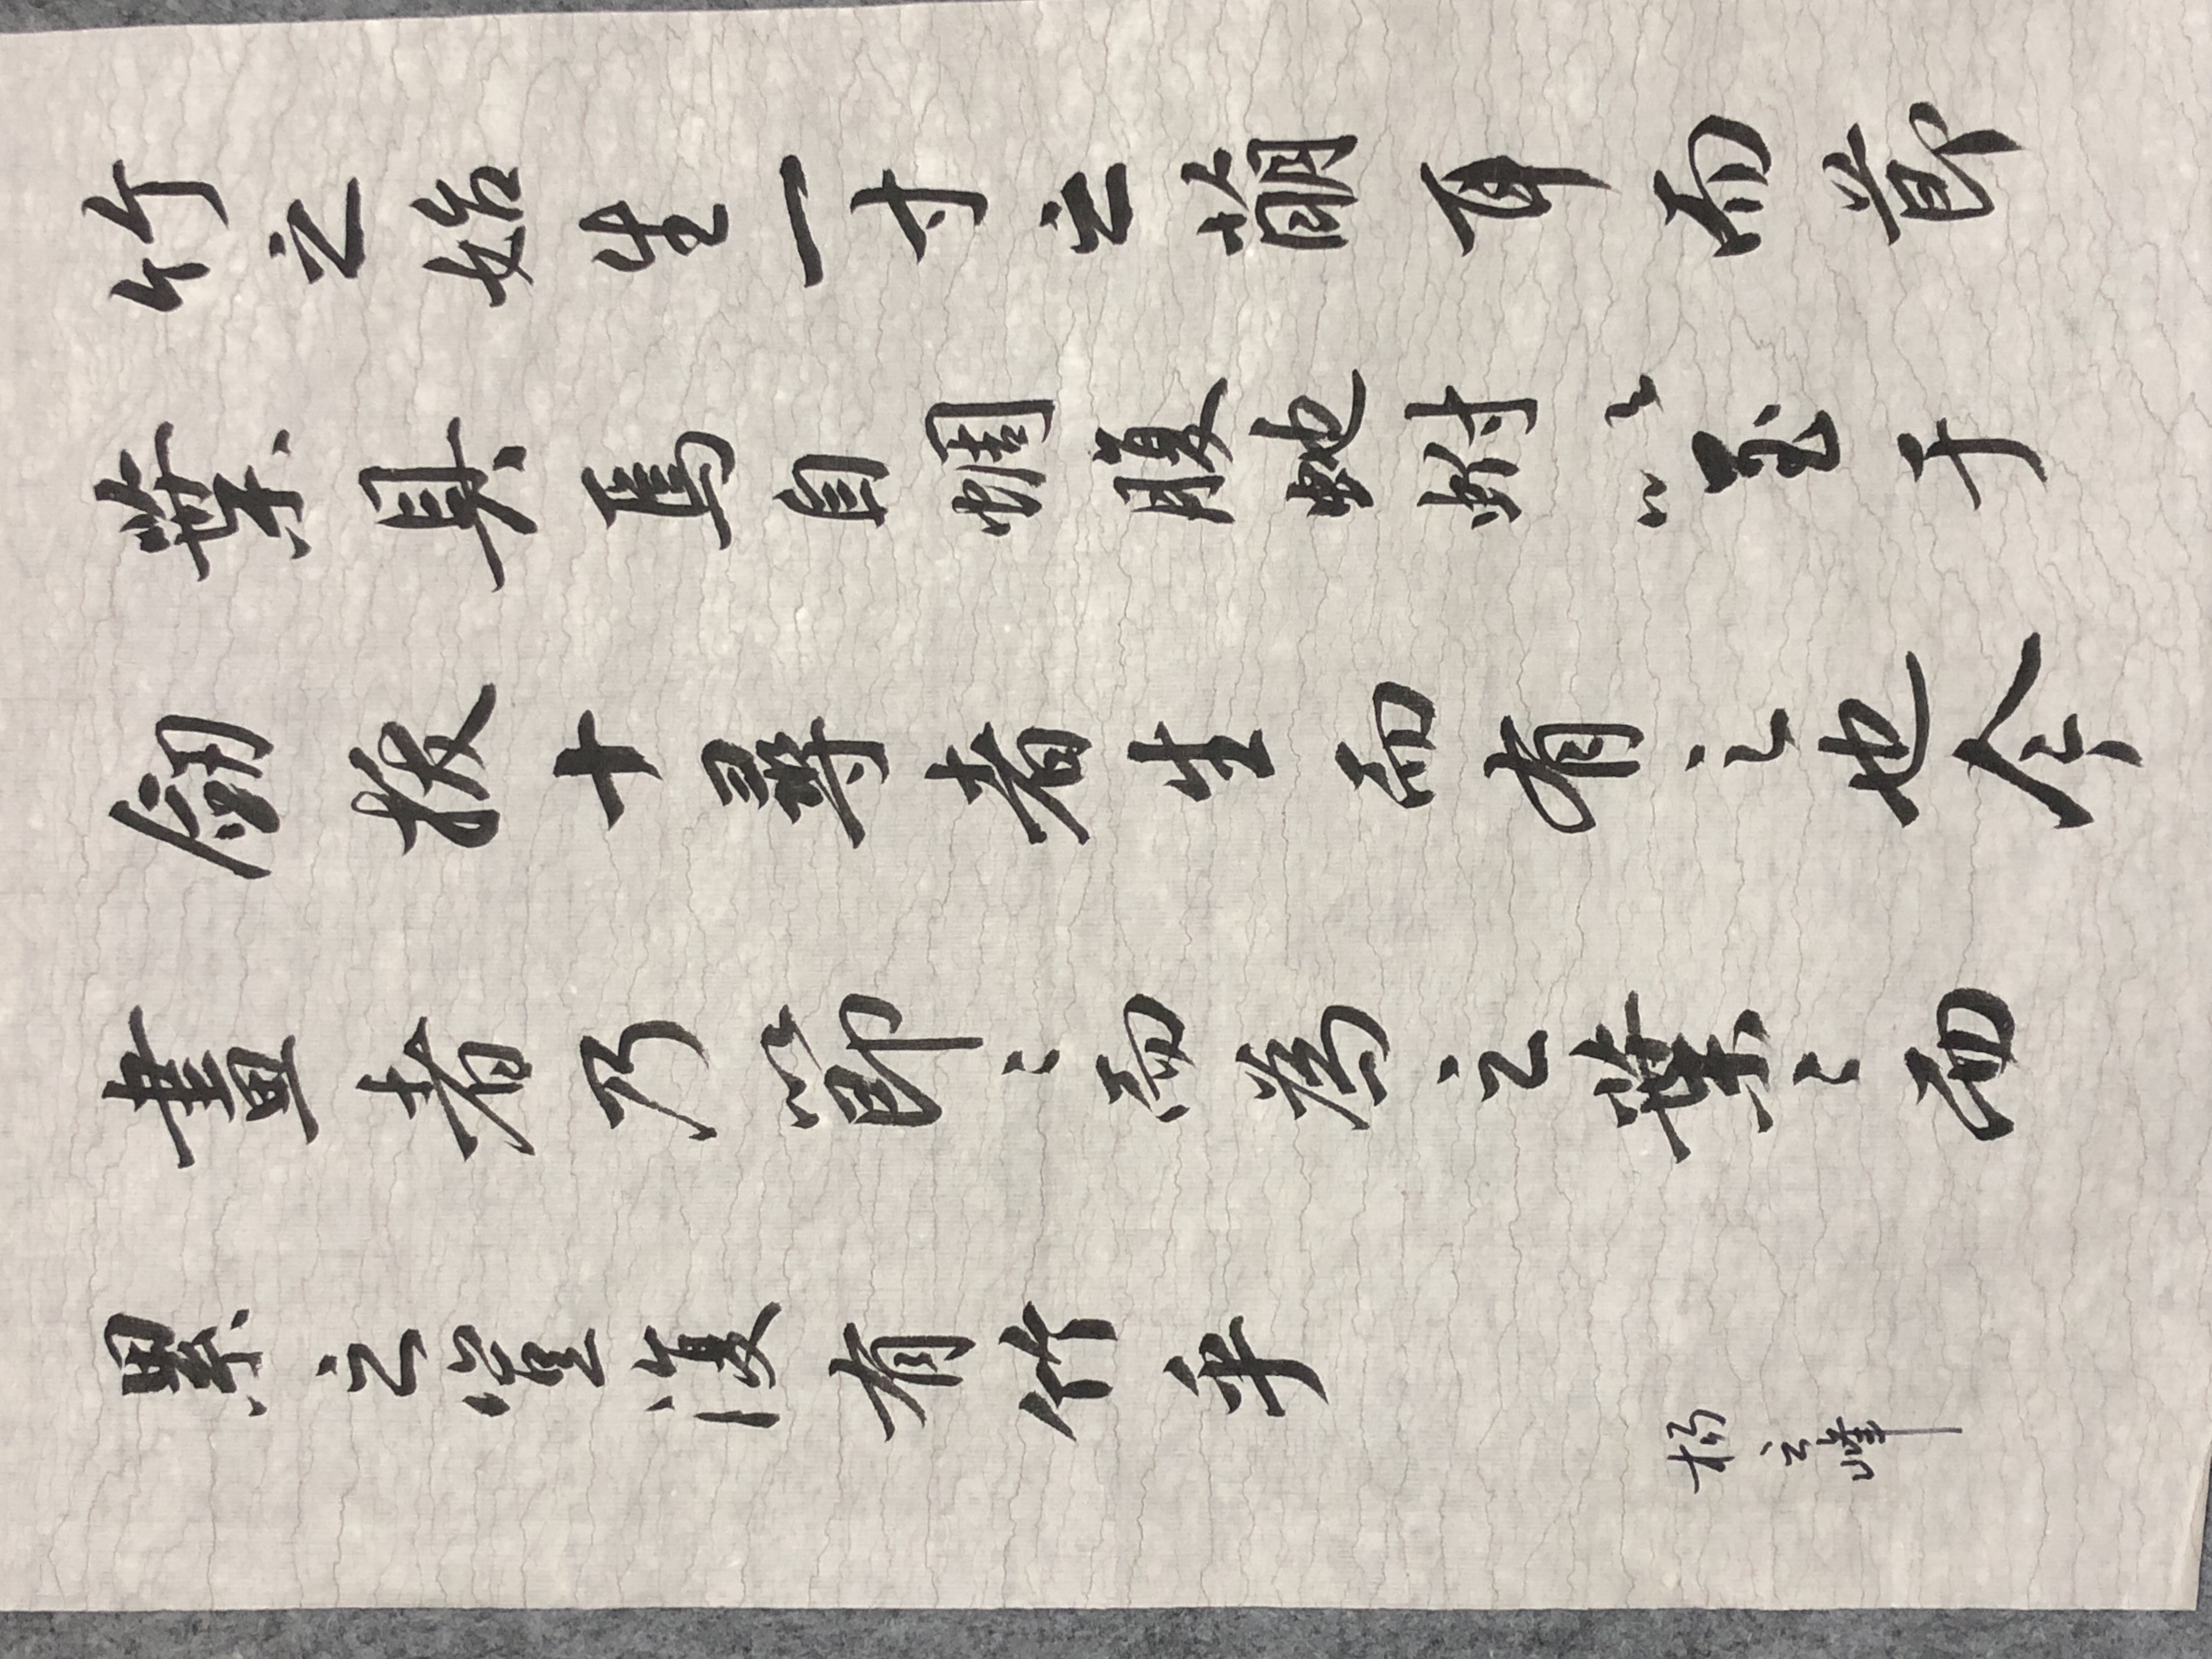 竹之始生一寸之萌耳而節
葉具焉自蜩腹蛇蚹以至于
劒拔十尋者生而有之也今
畫者乃節〻而為之葉〻而
累之豈復有竹乎
楊之峰